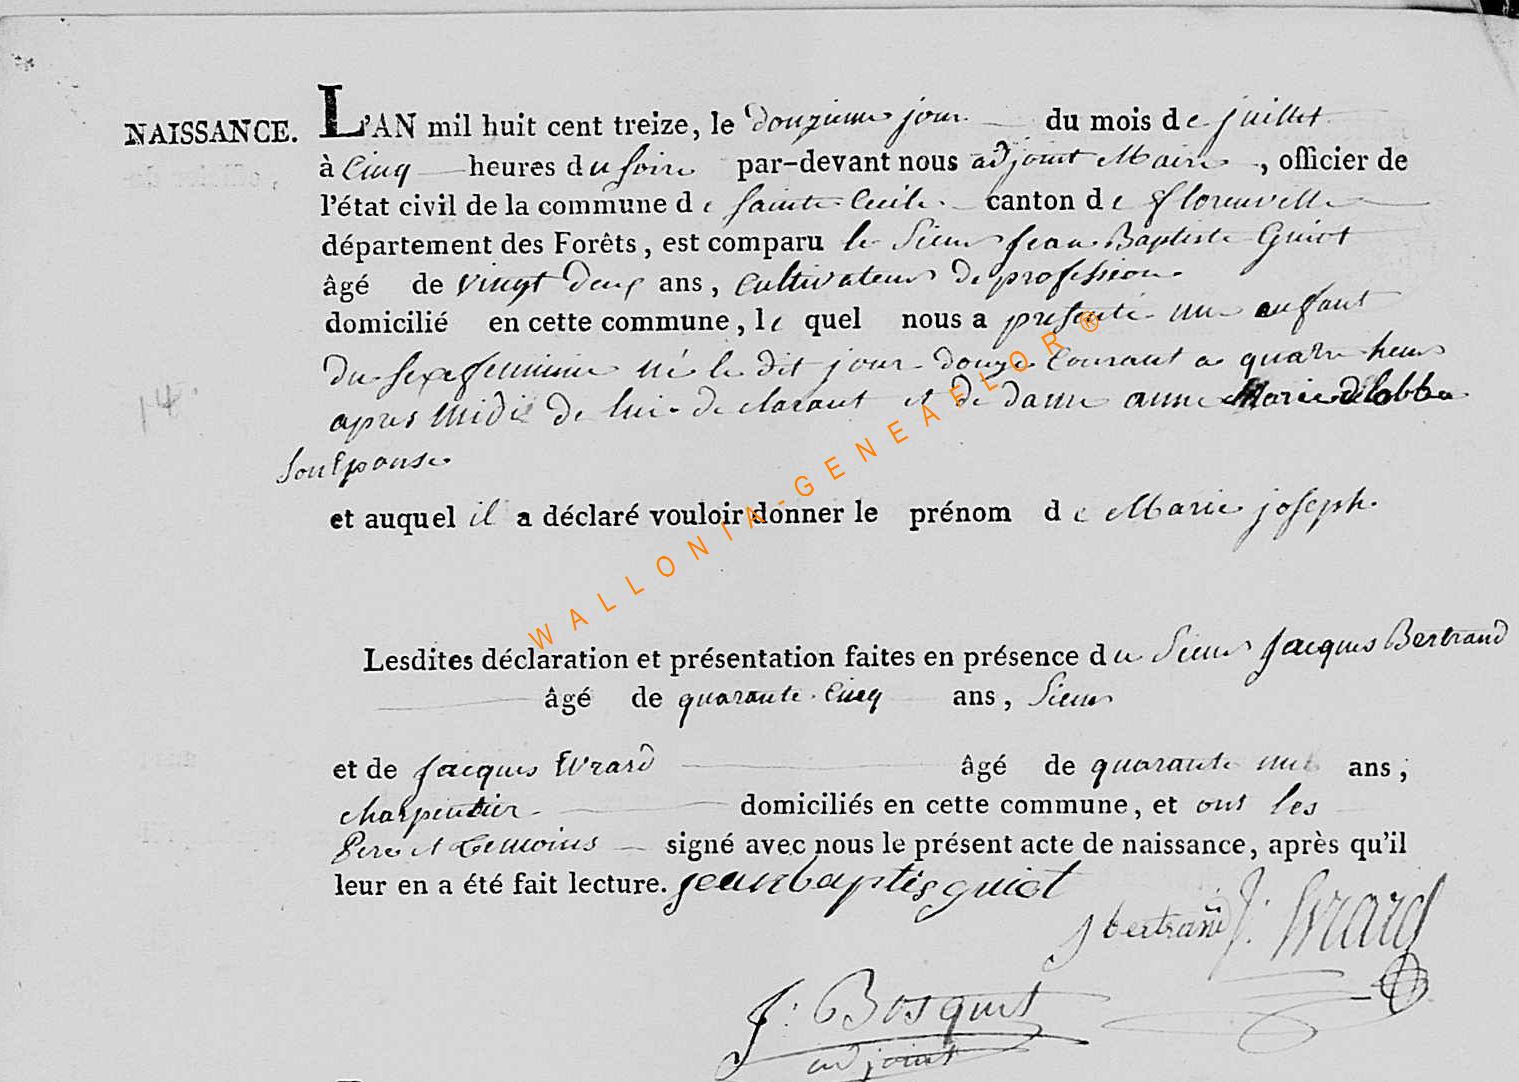 NAISSANCE. L'AN mil huit cent treize, le douzieme jour du mois de juillet
à Cinq heures du soire par-devant nous adjoint Maire, officier de
l'état civil de la commune de Sainte Cecile. canton de florenville
département des Forêts, est comparu le Sieur Jean Baptiste Guiot
âgé de vingt deux ans, Cultivateur de profession.
domicilié en cette commune, le quel nous a présenté un enfant
du sexe feminin né le dit jour douze Courant a quatre heurs
14.
apres midi de lui declarant et de dame anne Marie delobbe
son Epouse.
et auquel il a déclaré vouloir donner le prénom de Marie joseph.
WALLONIA-GENEAFLOR®
Lesdites déclaration et présentation faites en présence du Sieur Jacques Bertrand
âgé de quarante Cinq ans, Sieur
et de Jacques Evrard âgé de quarante ans;
charpentier domiciliés en cette commune, et ont les
Pere et temoins signé avec nous le présent acte de naissance, après qu'il
leur en a été fait lecture. jeanbaptis guiot
J bertrand J: Evrard
J: Bosquet
adjoint